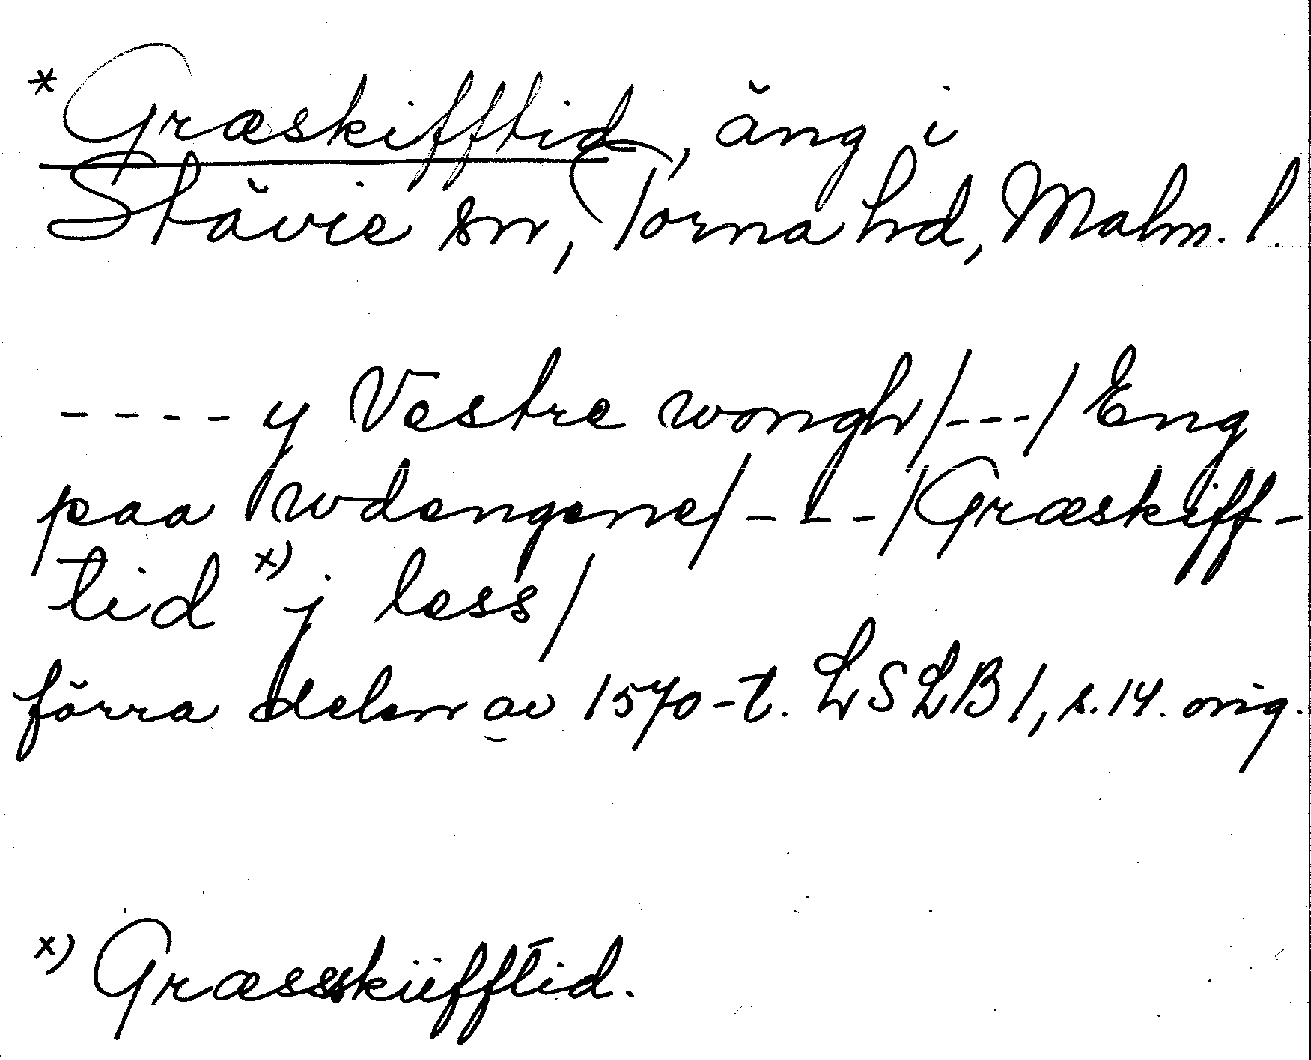 * Græskifftid, äng i
Stävie sn, Torna hd, Malm. l.
---- y Vestre wongh/---/ Eng
paa wdengene/---/Græskiff-
tid x) j less/
förra delen av 1570-t. LSLB 1, s. 14. orig.
x) Græsskiifftid.